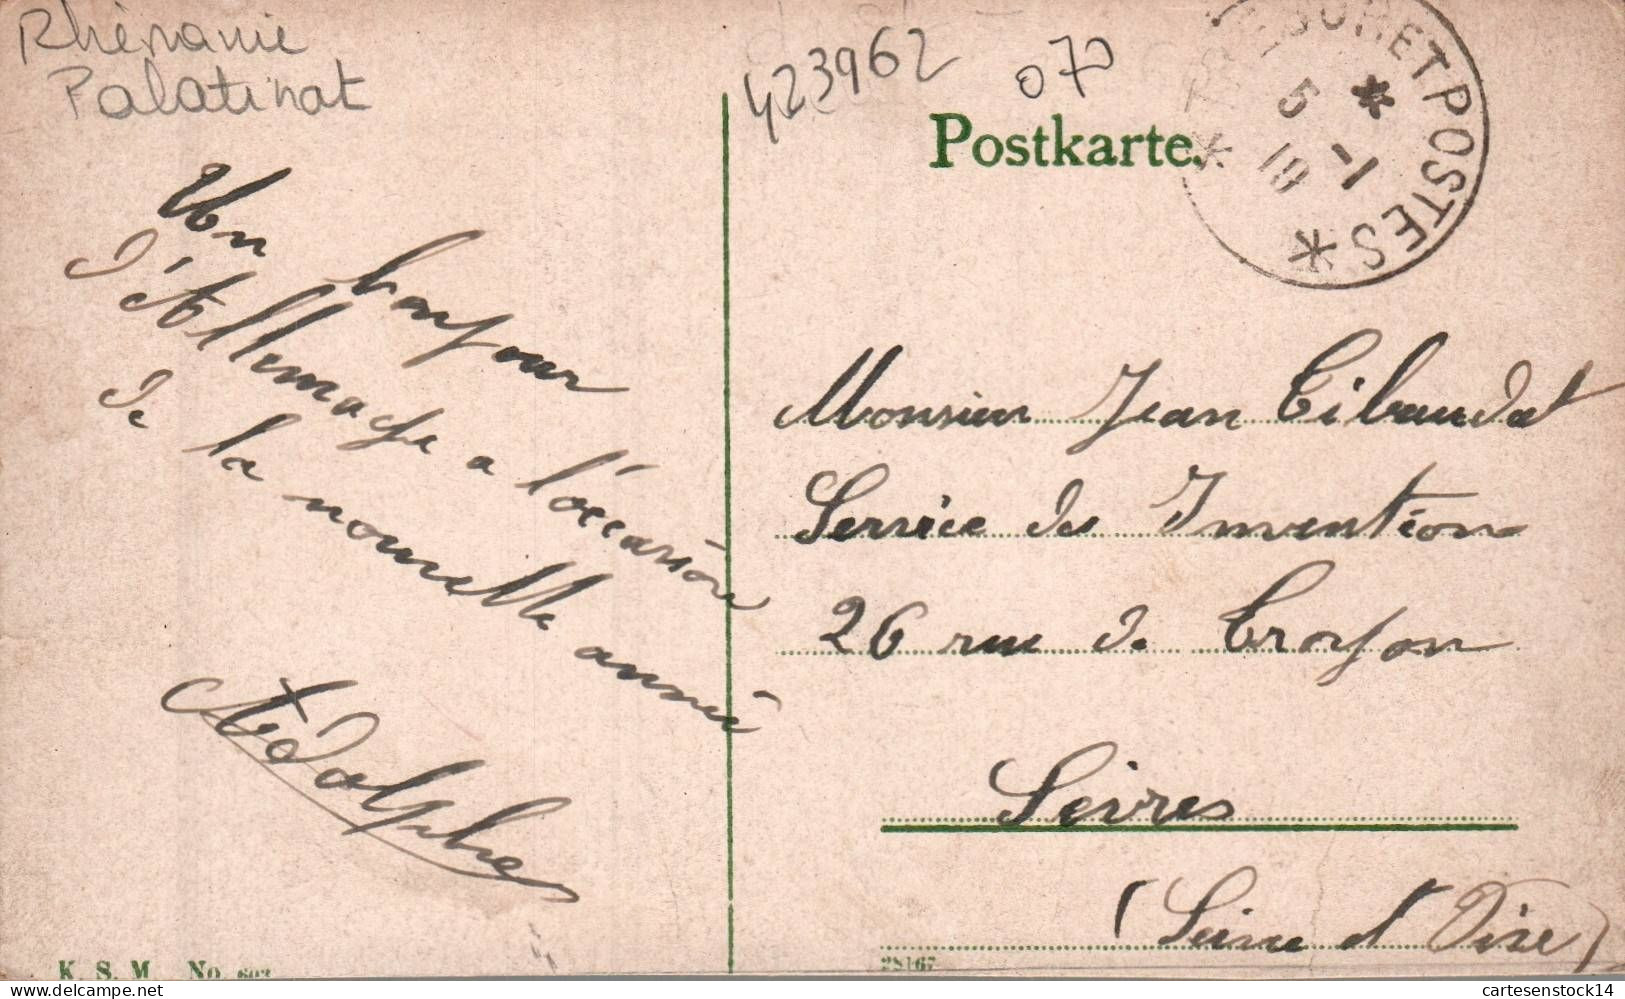 Rhénanie
Palatinat
423962
070
Postkarte.
TRÉSOR ET POSTES
5 -1
19
Un bonjour
d'Allemagne a l'occasion
de la nouvelle année
Adolphe
Monsieur Jean Tibaudat
Service des Inventions
26 rue de Troyon
Sèvres
(Seine et Oise)
K. S. M. No. 603
28167
cartesenstock14